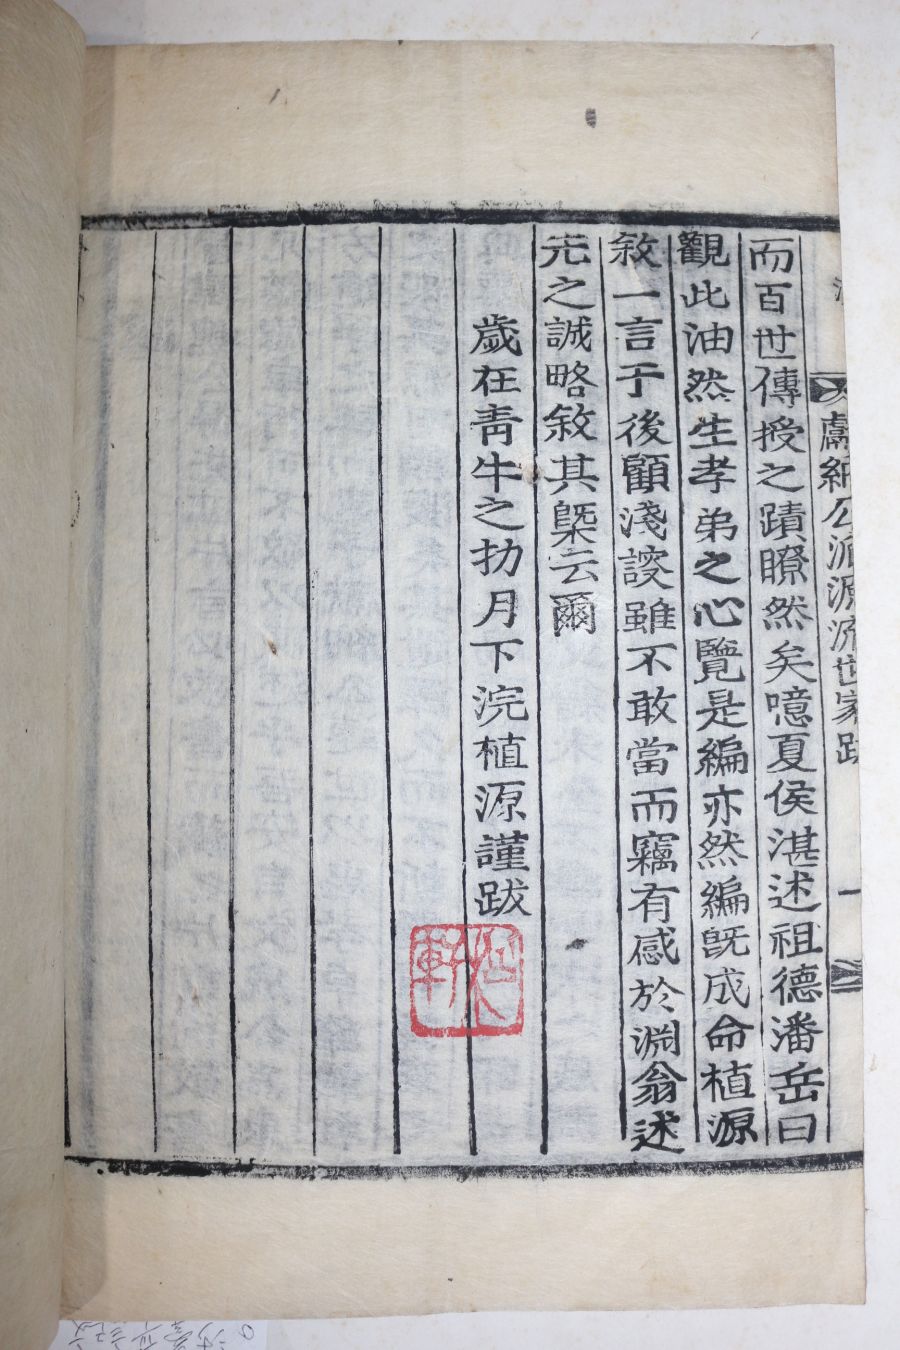 獻納公派源流世家跋
一
而百世傳授之蹟瞭然矣噫夏侯湛述祖德潘岳曰
觀此油然生孝弟之心覽是編亦然編旣成命植源
敘一言于後顧淺謏雖不敢當而竊有感於淵翁述
先之誠略敘其槩云爾
歲在靑牛之扐月下浣植源謹跋